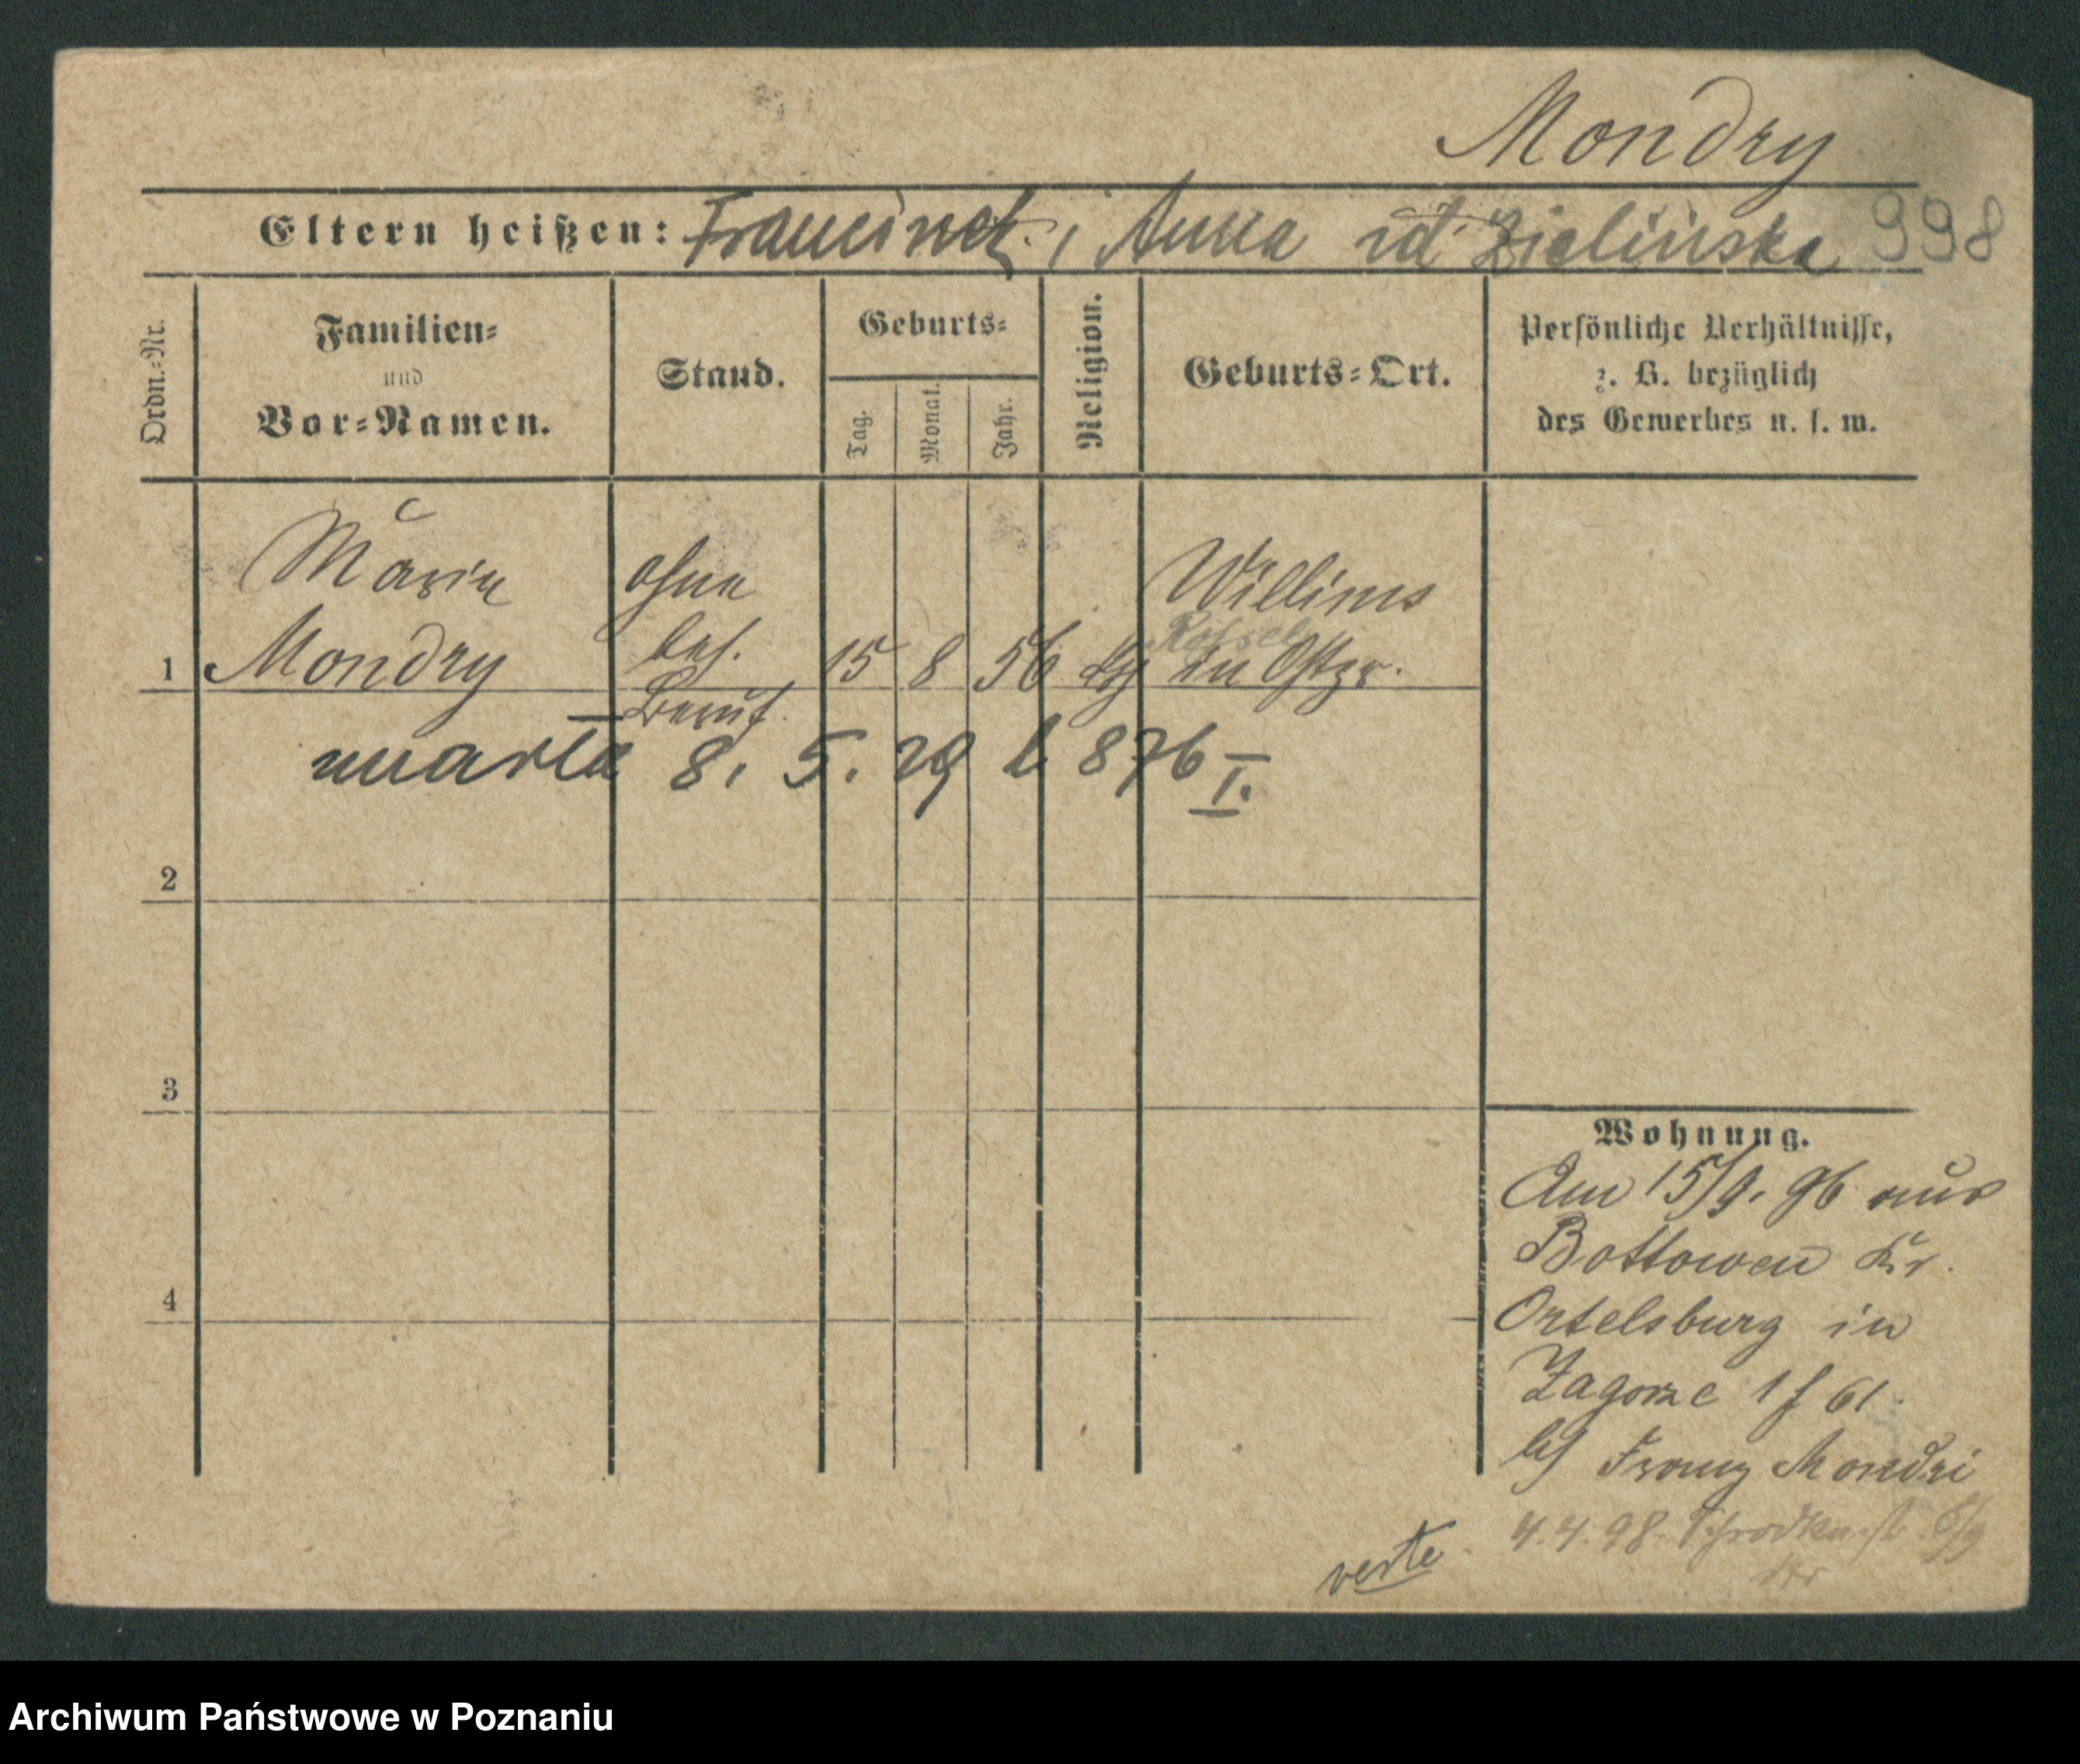 Mondry
Eltern heißen: Franciszek i Anna zd Zielińska 998
Ordn.=Nr.
Familien=
und
Vor=Namen.
Stand.
Geburts=
Tag.
Monat.
Jahr.
Religion.
Geburts=Ort.
Persönliche Verhältnisse,
z. B. bezüglich
des Gewerbes u. s. w.
Maria ohne Willims
bes. Rössel
1 Mondry 15 8 56 in Ostpr.
Beruf.
umarła 8. 5. 29 l. 876 I.
2
3
4
Wohnung.
Am 15/9. 96 aus
Bottowen Kr.
Ortelsburg in
Zagorze 1 f 61.
bei Franz Mondri
4.4.98.
verte
Archiwum Państwowe w Poznaniu